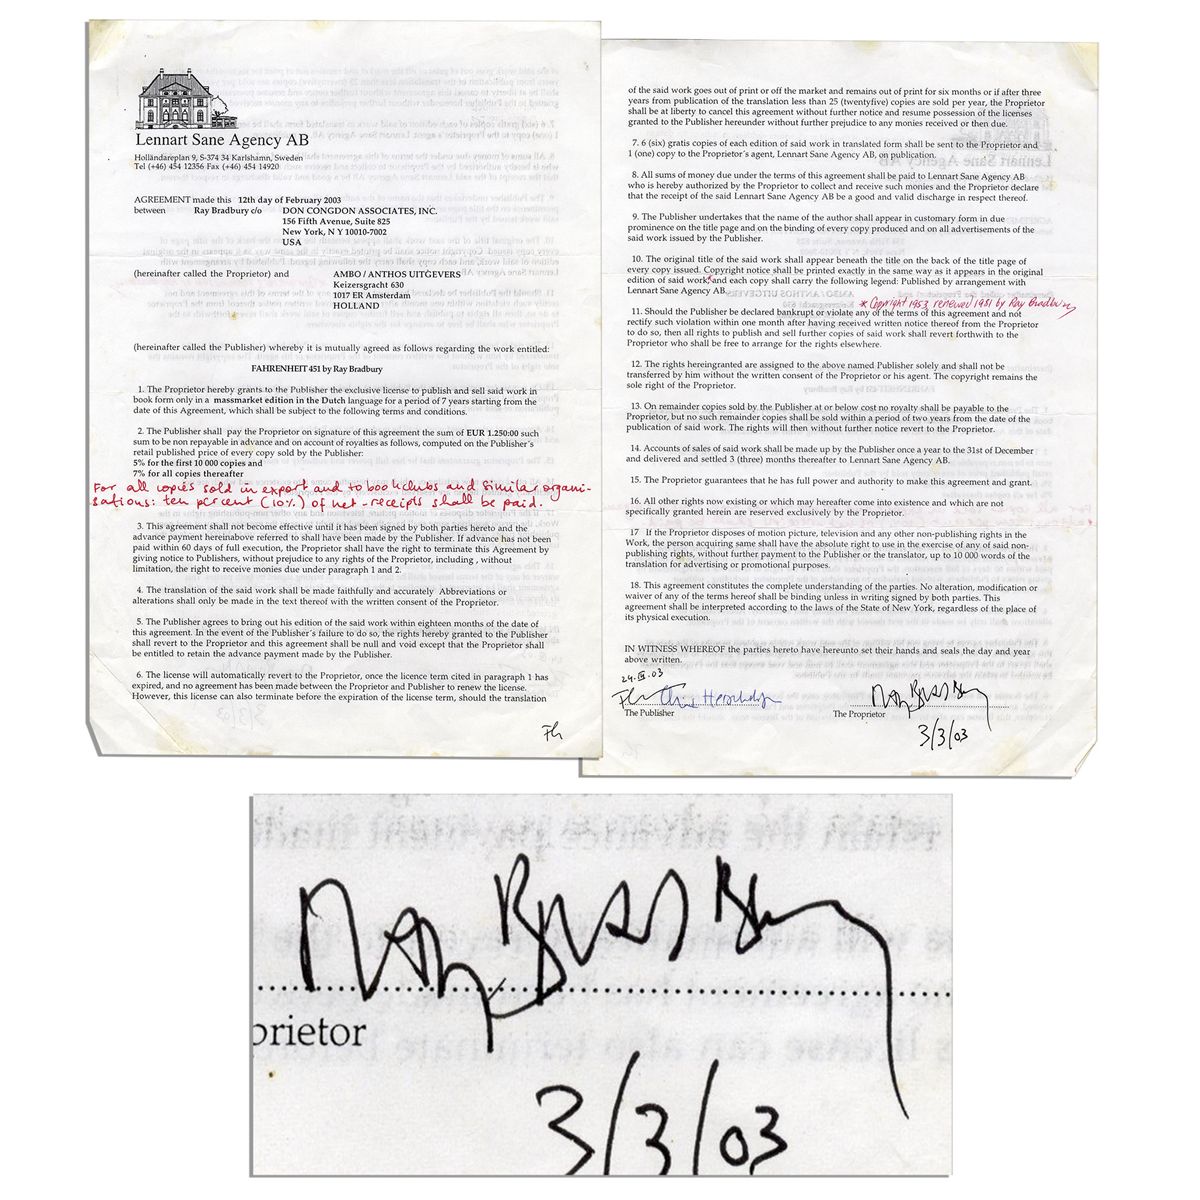 Lennart Sane Agency AB
Holländareplan 9, S-374 34 Karlshamn, Sweden
Tel (+46) 454 12356 Fax (+46) 454 14920
AGREEMENT made this 12th day of February 2003
between Ray Bradbury c/o DON CONGDON ASSOCIATES, INC.
156 Fifth Avenue, Suite 825
New York, N Y 10010-7002
USA
(hereinafter called the Proprietor) and AMBO / ANTHOS UITGEVERS
Keizersgracht 630
1017 ER Amsterdam
HOLLAND
(hereinafter called the Publisher) whereby it is mutually agreed as follows regarding the work entitled:
FAHRENHEIT 451 by Ray Bradbury
1. The Proprietor hereby grants to the Publisher the exclusive license to publish and sell said work in
book form only in a massmarket edition in the Dutch language for a period of 7 years starting from the
date of this Agreement, which shall be subject to the following terms and conditions.
2. The Publisher shall pay the Proprietor on signature of this agreement the sum of EUR 1.250:00 such
sum to be non repayable in advance and on account of royalties as follows, computed on the Publisher's
retail published price of every copy sold by the Publisher:
5% for the first 10 000 copies and
7% for all copies thereafter
For all copies sold in export and to bookclubs and similar organi-
sations: ten percent (10%) of net-receipts shall be paid.
3. This agreement shall not become effective until it has been signed by both parties hereto and the
advance payment hereinabove referred to shall have been made by the Publisher. If advance has not been
paid within 60 days of full execution, the Proprietor shall have the right to terminate this Agreement by
giving notice to Publishers, without prejudice to any rights of the Proprietor, including , without
limitation, the right to receive monies due under paragraph 1 and 2.
4. The translation of the said work shall be made faithfully and accurately Abbreviations or
alterations shall only be made in the text thereof with the written consent of the Proprietor.
5. The Publisher agrees to bring out his edition of the said work within eighteen months of the date of
this agreement. In the event of the Publisher's failure to do so, the rights hereby granted to the Publisher
shall revert to the Proprietor and this agreement shall be null and void except that the Proprietor shall
be entitled to retain the advance payment made by the Publisher.
6. The license will automatically revert to the Proprietor, once the licence term cited in paragraph 1 has
expired, and no agreement has been made between the Proprietor and Publisher to renew the license.
However, this license can also terminate before the expiration of the license term, should the translation
of the said work goes out of print or off the market and remains out of print for six months or if after three
years from publication of the translation less than 25 (twentyfive) copies are sold per year, the Proprietor
shall be at liberty to cancel this agreement without further notice and resume possession of the licenses
granted to the Publisher hereunder without further prejudice to any monies received or then due.
7. 6 (six) gratis copies of each edition of said work in translated form shall be sent to the Proprietor and
1 (one) copy to the Proprietor's agent, Lennart Sane Agency AB, on publication.
8. All sums of money due under the terms of this agreement shall be paid to Lennart Sane Agency AB
who is hereby authorized by the Proprietor to collect and receive such monies and the Proprietor declare
that the receipt of the said Lennart Sane Agency AB be a good and valid discharge in respect thereof.
9. The Publisher undertakes that the name of the author shall appear in customary form in due
prominence on the title page and on the binding of every copy produced and on all advertisements of the
said work issued by the Publisher.
10. The original title of the said work shall appear beneath the title on the back of the title page of
every copy issued. Copyright notice shall be printed exactly in the same way as it appears in the original
edition of said work,* and each copy shall carry the following legend: Published by arrangement with
Lennart Sane Agency AB.
* Copyright 1953, renewed 1981 by Ray Bradbury
11. Should the Publisher be declared bankrupt or violate any of the terms of this agreement and not
rectify such violation within one month after having received written notice thereof from the Proprietor
to do so, then all rights to publish and sell further copies of said work shall revert forthwith to the
Proprietor who shall be free to arrange for the rights elsewhere.
12. The rights hereingranted are assigned to the above named Publisher solely and shall not be
transferred by him without the written consent of the Proprietor or his agent. The copyright remains the
sole right of the Proprietor.
13. On remainder copies sold by the Publisher at or below cost no royalty shall be payable to the
Proprietor, but no such remainder copies shall be sold within a period of two years from the date of the
publication of said work. The rights will then without further notice revert to the Proprietor.
14. Accounts of sales of said work shall be made up by the Publisher once a year to the 31st of December
and delivered and settled 3 (three) months thereafter to Lennart Sane Agency AB.
15. The Proprietor guarantees that he has full power and authority to make this agreement and grant.
16. All other rights now existing or which may hereafter come into existence and which are not
specifically granted herein are reserved exclusively by the Proprietor.
17 If the Proprietor disposes of motion picture, television and any other non-publishing rights in the
Work, the person acquiring same shall have the absolute right to use in the exercise of any of said non-
publishing rights, without further payment to the Publisher or the translator, up to 10 000 words of the
translation for advertising or promotional purposes.
18. This agreement constitutes the complete understanding of the parties. No alteration, modification or
waiver of any of the terms hereof shall be binding unless in writing signed by both parties. This
agreement shall be interpreted according to the laws of the State of New York, regardless of the place of
its physical execution.
IN WITNESS WHEREOF the parties hereto have hereunto set their hands and seals the day and year
above written.
Ray Bradbury
The Publisher The Proprietor
3/3/03
Ray Bradbury
prietor
3/3/03